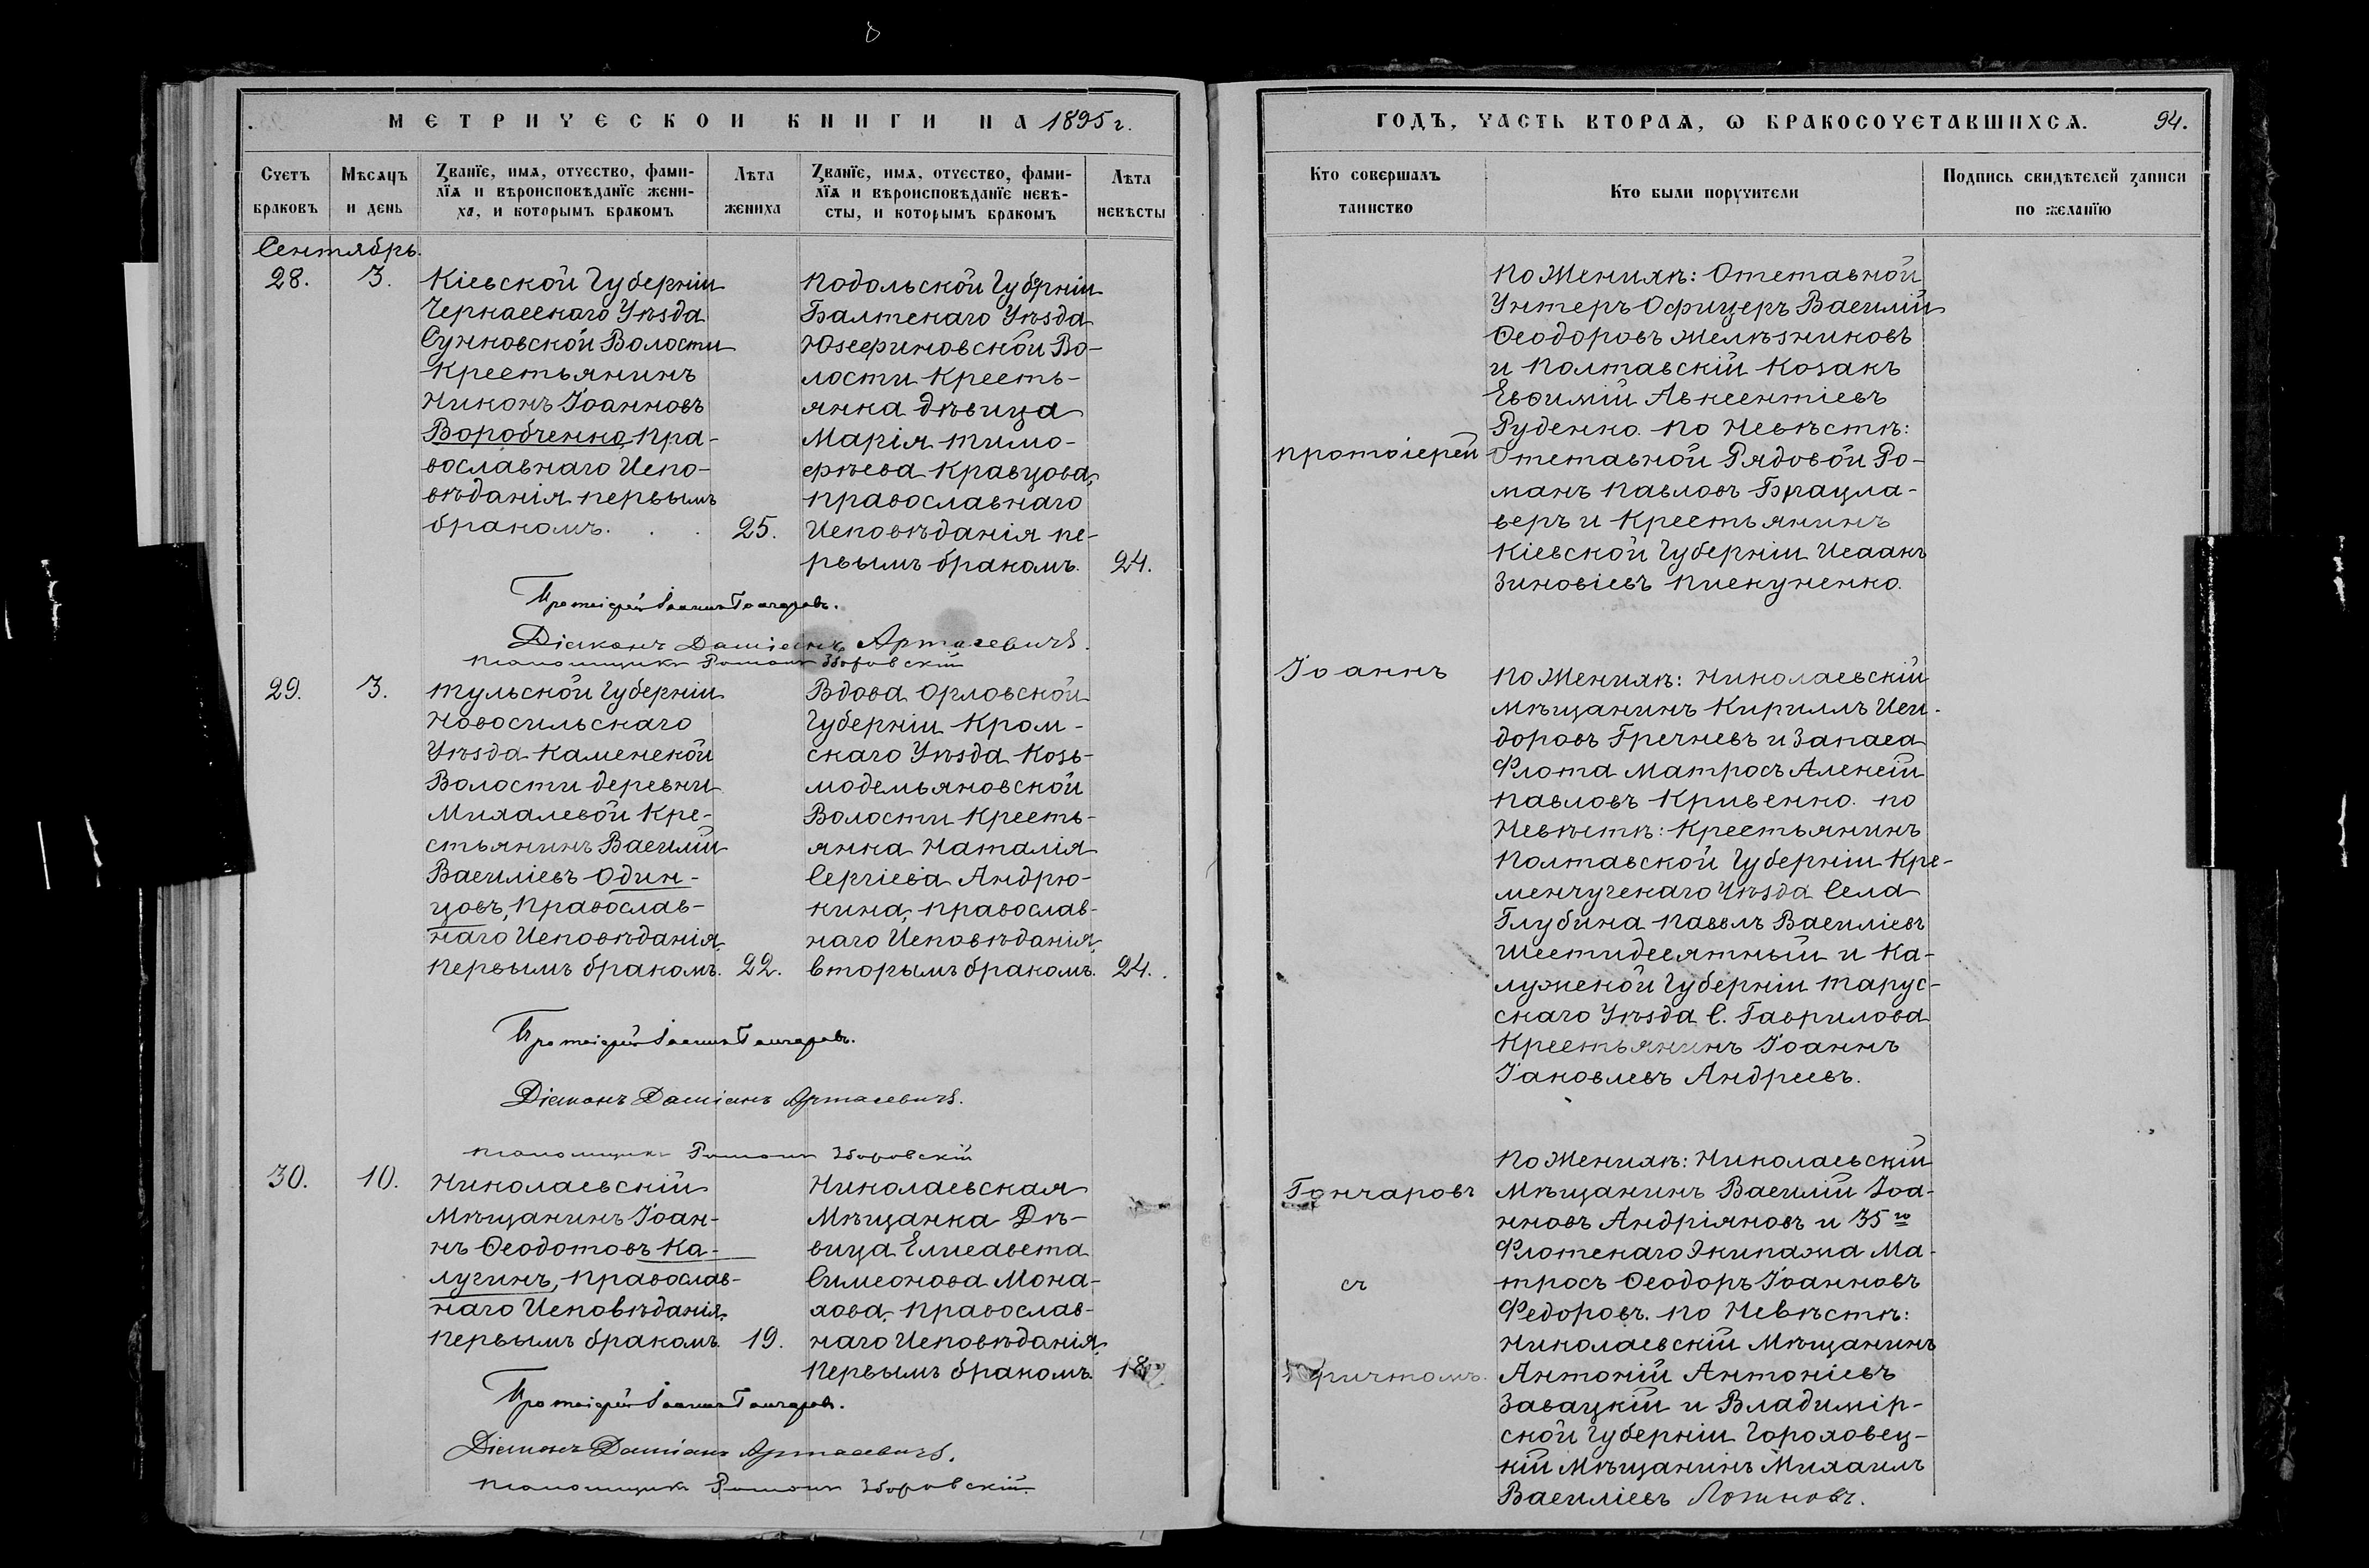 МЕТРИЧЕСКОЙ КНИГИ НА 1895 г.
Счетъ браковъ
Мѣсяцъ и день
Званїе, имѧ, отчество, фами-
лїѧ и вѣроисповѣданїе жени-
ха, и которымъ бракомъ
Лѣта жениха
Званїе, имѧ, отчество, фами-
лїѧ и вѣроисповѣданїе невѣ-
сты, и которымъ бракомъ
Лѣта невѣсты
Сентябрь.
28.
3.
Кіевской Губерніи
Черкасскаго Уѣзда
Сунковской Волости
Крестьянинъ
Никонъ Іоанновъ
Воробченко, пра-
вославнаго Испо-
вѣданія первымъ
бракомъ.
25.
Подольской Губрніи
Балтскаго Уѣзда
Юзефиновской Во-
лости Кресть-
янка дѣвица
Марія Тимо-
фѣева Кравцова,
православнаго
Исповѣданія пе-
рвымъ бракомъ.
24.
Протоіерей Іоаннъ Гончаровъ.
Діаконъ Даміанъ Артасевичъ.
Псаломщикъ Романъ Зборовскій
29.
3.
Тульской Губерніи
Новосильскаго
Уѣзда Каменской
Волости деревни
Михалевой Кре-
стьянинъ Василій
Василіевъ Один-
цовъ, Православ-
наго Исповѣданія,
первымъ бракомъ.
22.
Вдова Орловской
Губерніи Кром-
скаго Уѣзда Козь-
модемьяновской
Волости Кресть-
янка Наталія
Сергіева Андрю-
нина, православ-
наго Исповѣданія,
вторымъ бракомъ.
24.
Протоіерей Іоаннъ Гончаровъ.
Діаконъ Даміанъ Артасевичъ.
Псаломщикъ Романъ Зборовскій
30.
10.
Николаевскій
Мѣщанинъ Іоан-
нъ Ѳеодотовъ Ка-
лугинъ, Православ-
наго Исповѣданія,
первымъ бракомъ.
19.
Николаевская
Мѣщанка Дѣ-
вица Елисавета
Симеонова Мона-
хова, православ-
наго Исповѣданія,
первымъ бракомъ.
18
Протоіерей Іоаннъ Гончаровъ.
Діаконъ Даміанъ Артасевичъ.
Псаломщикъ Романъ Зборовскій.
ГОДЪ, ЧАСТЬ ВТОРАѦ, Ѡ БРАКОСОЧЕТАВШИХСѦ.
94.
Кто совершалъ таинство
Кто были порꙋчители
Подпись свидѣтелей записи по желанїю
Протоіерей
Іоаннъ
Гончаровъ
съ
Причтомъ.
По Женихѣ: Отставной
Унтеръ Офицеръ Василій
Ѳеодоровъ Желѣзниковъ
и Полтавскій Козакъ
Евѳимій Авксентіевъ
Руденко. По Невѣстѣ:
Отставной Рядовой Ро-
манъ Павловъ Брацла-
веръ и Крестьянинъ
Кіевской Губерніи Исаакъ
Зиновіевъ Пискуненко.
По Женихѣ: Николаевскій
Мѣщанинъ Кириллъ Иси-
доровъ Гречневъ и Запаса
Флота Матросъ Алексій
Павловъ Кривенко. По
Невѣстѣ: Крестьянинъ
Полтавской Губерніи Кре-
менчугскаго Уѣзда Села
Глубина Павелъ Василіевъ
Шестидесятный и Ка-
лужской Губерніи Тарус-
скаго Уѣзда С. Гаврилова
Крестьянинъ Іоаннъ
Іаковлевъ Андреевъ.
По Женихѣ: Николаевскій
Мѣщанинъ Василій Іоа-
нновъ Андріяновъ и 35го
Флотскаго Экипажа Ма-
тросъ Ѳеодоръ Іоанновъ
Федоровъ. По Невѣстѣ:
Николаевскій Мѣщанинъ
Антоній Антоніевъ
Завацкій и Владимір-
ской Губерніи Гороховец-
кій Мѣщанинъ Михаилъ
Василіевъ Логиновъ.